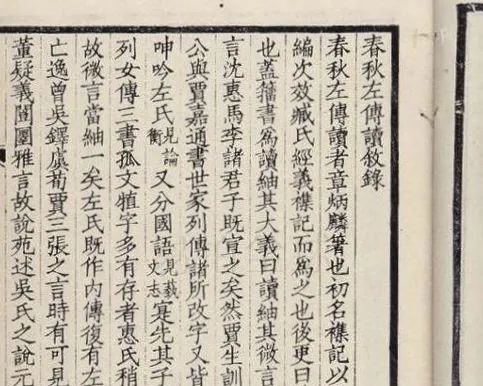 春秋左傳讀敘錄
春秋左傳讀者章炳麟箸也初名襍記以
編次效臧氏經義襍記而爲之也後更曰
也蓋籀書爲讀紬其大義曰讀紬其微言
言沈惠馬李諸君子既宣之矣然賈生訓
公與賈嘉通書世家列傳諸所改字又皆
呻吟左氏見論衡又分國語見藝文志寔先其子
列女傳三書孤文犆字多有存者惠氏稍
故微言當紬一矣左氏既作內傳復有左
亡逸曾吳鐸虞荀賈三張之言時有可見
董疑義闓圛雅言故說苑述吳氏之說元